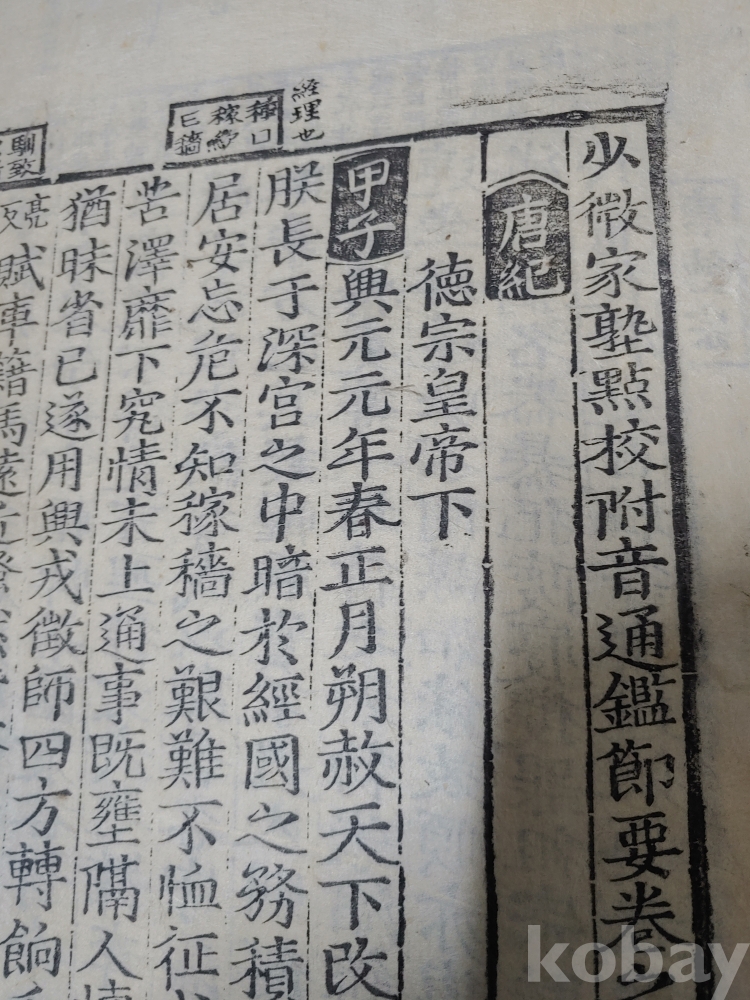 少微家塾點校附音通鑑節要卷
唐紀
德宗皇帝下
經理也
甲子興元元年春正月朔赦天下改
朕長于深宮之中暗於經國之務積
居安忘危不知稼穡之艱難不恤征
苦澤靡下究情未上通事既壅隔人
猶昧省己遂用興戎徵師四方轉餉
馴致
賦車籍馬遠近騷
kobay